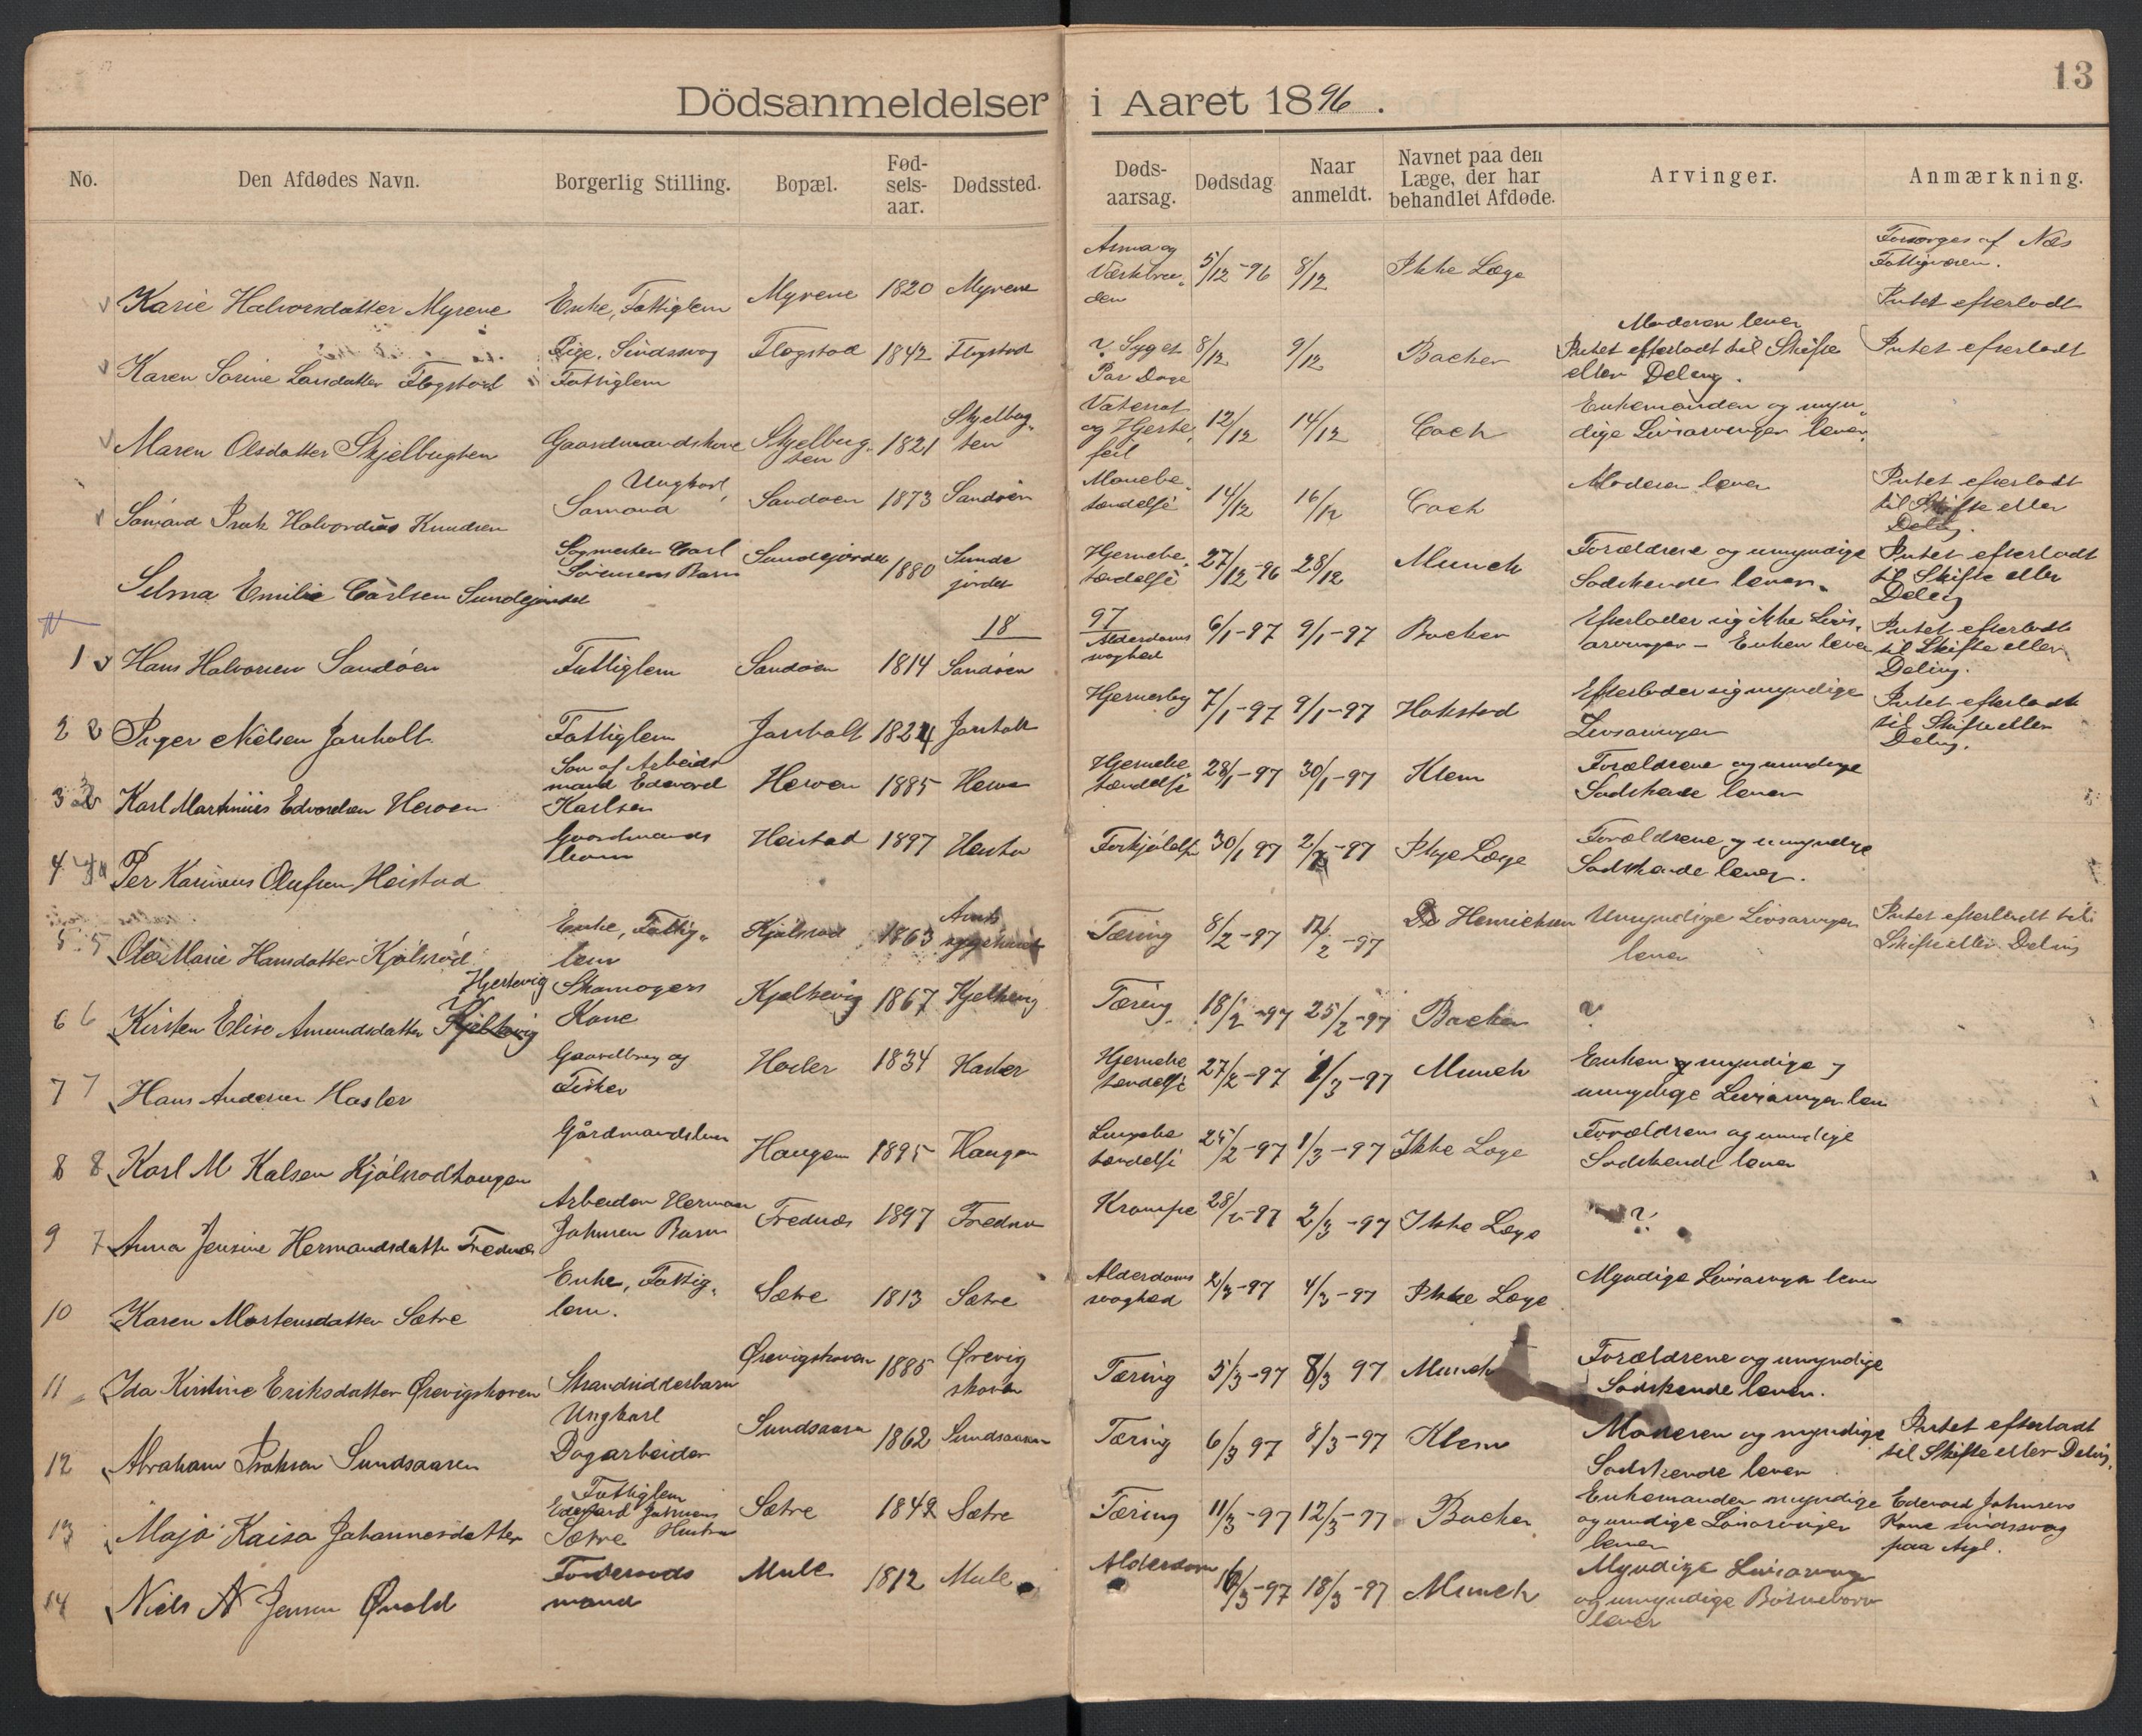 13
Dödsanmeldelser i Aaret 1896.
No. Den Afdødes Navn. Borgerlig Stilling. Bopæl. Fød-sels-aar. Dødssted. Døds-aarsag. Dødsdag Naar anmeldt. Navnet paa den Læge, der har behandlet Afdøde. Arvinger. Anmærkning.
Karie Halvorsdatter Myrene Enke, Fattiglem Myrene 1820 Myrene 5/12-96 8/12 Ikke Læge Forsørges af Næs Fattigvæsen. Intet efterladt
Karen Sorine Larsdatter Flogstad Pige, Sindssvag Fattiglem Flogstad 1842 Flogstad ? Syg et Par Dage 8/12 9/12 Backer Moderen lever Intet efterladt til Skifte eller Deling. Intet efterladt
Maren Olsdatter Skjelbugten Gaardmandskone Skjelbugten 1821 Vatersot og Hjertefeil 12/12 14/12 Coch Enkemanden og myndige Livsarvinger lever.
Halvordius Knudsen Ungkarl, Sømand Sandøen 1873 Sandøen Mavebetændelse 14/12 16/12 Coch Moderen lever Intet efterladt til Skifte eller Deling.
Selma Emilie Carlsen Sundejordet Sagmester Carl Sørensens Barn Sundejordet 1880 Sundejordet Hjernebetændelse 27/12-96 28/12 Munch Forældrene og umyndige Sødskende lever. Intet efterladt til Skifte eller Deling
18 97
1 Hans Halvorsen Sandøen Fattiglem Sandøen 1814 Sandøen Alderdomssvaghed 6/1-97 9/1-97 Backer Efterlader sig ikke Livsarvinger - Enken lever Intet efterladt til Skifte eller Deling.
2 2 Inger Nielsen Jarsholt Fattiglem Jarsholt 1824 Jarsholt 7/1-97 9/1-97 Hakstad Efterlader sig myndige Livsarvinger Intet efterladt til Skifte eller Deling.
3 3 Karl Martinius Edvardsen Herøen Søn af Arbeidsmand Edevard Karlsen Herøen 1885 Herøen Hjernebetændelse 28/1-97 30/1-97 Klem Forældrene og umyndige Sødskende lever
4 4 Per Karinius Olufsen Heistad Gaardmandsbarn Heistad 1897 Heistad Forkjølelse 30/1 97 2/2-97 Ikke Læge Forældrene og umyndige Sødskende lever.
5 5 Marie Hansdatter Kjølsrød Enke, Fattiglem Kjølsrød 1863 Amtssygehuset Tæring 8/2-97 12/2-97 Dr Henrichsen Umyndige Livsarvinger lever Intet efterladt til Skifte eller Deling
6 6 Kirsten Elise Amundsdatter Kjeltevig Hjertevig Skomagers Kone Kjeltevig 1867 Kjeltevig Tæring 18/2-97 25/2-97 Backer ?
7 7 Hans Andersen Hasler Gaardbrug og Fisker Hasler 1834 Hasler Hjernebetændelse 27/2-97 1/3-97 Munch Enken og myndige og umyndige Livsarvinger lever
8 8 Karl M Kalsen Kjølsrødhaugen Gårdmandsbarn Haugen 1895 Haugen Lungebetændelse 25/2-97 1/3-97 Ikke Læge Forældrene og umyndige Sødskende lever
9 7 Anna Jensine Hermandsdatter Frednes Arbeider Herman Johnsen Barn Frednes 1897 Frednes Krampe 28/2-97 2/3-97 Ikke Læge ?
10 Karen Mortensdatter Sætre Enke, Fattiglem. Sætre 1813 Sætre Alderdomssvaghed 2/3-97 4/3-97 Ikke Læge Myndige Livsarvinger lever
11 Ida Kirstine Eriksdatter Ørevigskoven Strandsidderbarn Ørevigskoven 1885 Ørevigskoven Tæring 5/3-97 8/3 97 Munch Forældrene og umyndige Sødskende lever.
12 Abraham Isaksen Sundsaasen Ungkarl Dagarbeider Sundsaasen 1862 Sundsaasen Tæring 6/3 97 8/3-97 Klem Moderen og myndige Sødskende lever Intet efterladt til Skifte eller Deling.
13 Maja Kaisa Johannesdatter Fattiglem Edevard Johnsens Hustru Sætre Sætre 1842 Sætre Tæring 11/3-97 12/3-97 Backer Enkemanden myndige og umyndige Livsarvinger lever Edevard Johnsens Kone sindssvag paa Asyl.
14 Niels A Jensen Øvald Foderaadsmand Mule 1812 Mule Alderdom 16/3-97 18/3-97 Munch Myndige Livsarvinger og umyndige Børnebørn lever